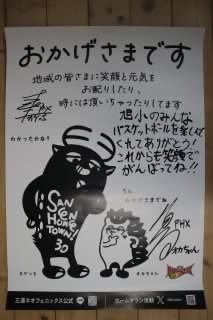 おかげさまです
地域の皆さまに笑顔と元気を
お配りしたり、
時には頂いちゃったりしてます
PHX
旭小のみんな
バスケットボールを楽しんで
くれてありがとう!
これからも笑顔で
がんばってね!!
SAN
EN
HOME
TOWN!
30
PHX
三遠ネオフェニックス公式
ホームタウン活動